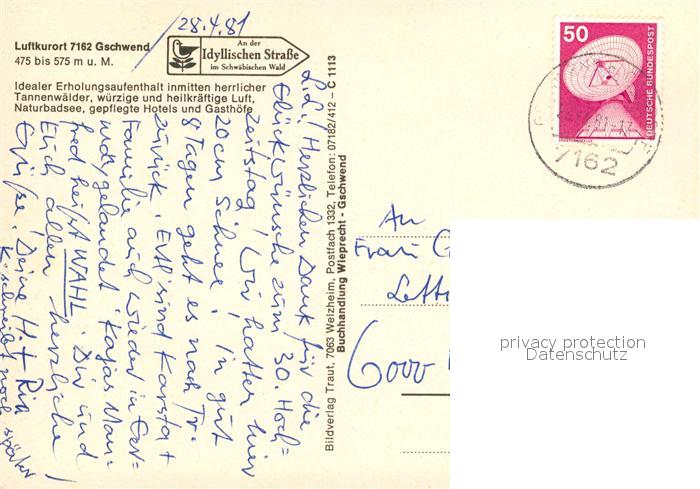 Luftkurort 7162 Gschwend
475 bis 575 m ü. M.
An der
Idyllischen Straße
im Schwäbischen Wald
Idealer Erholungsaufenthalt inmitten herrlicher
Tannenwälder, würzige und heilkräftige Luft,
Naturbadsee, gepflegte Hotels und Gasthöfe
28.4.81
Herzlichen Dank für die
Glückwünsche zum 30. Hoch-
zeitstag! Wir hatten hier
20cm Schnee! In gut
8 Tagen geht es nach
zurück. Evtl sind Karsta +
Familie auch wieder in
gelandet. Kajas
fred heißt WAHL. Dir und
Euch allen herzliche
Grüße! Deine H. +
K. schreibt noch später
Bildverlag Traut, 7063 Welzheim, Postfach 1332, Telefon: 07182/412 – C 1113
Buchhandlung Wieprecht - Gschwend
50
DEUTSCHE BUNDESPOST
7162
An
Frau
6000
privacy protection
Datenschutz